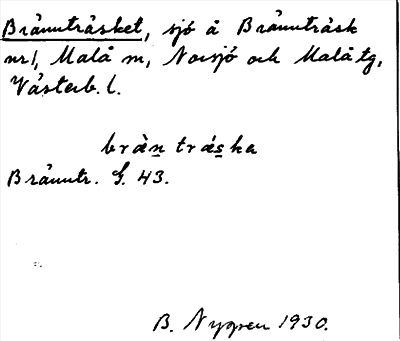 Brännträsket, sjö å Brännträsk
nr 1, Malå sn, Norsjö och Malå tg,
Västerb. l.
bràn̲ trás̲ka
Bränntr. G. 43.
B. Nygren 1930.